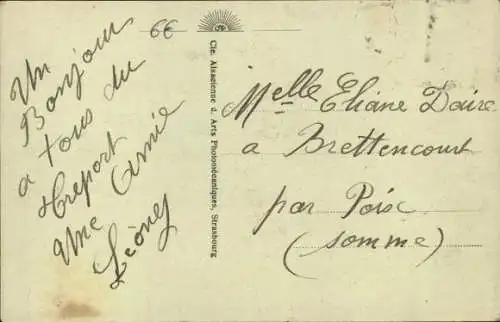 66
Un
Bonjour
a tous du
treport
une Amie
Léonej
Cie. Alsacienne d. Arts Photomécaniques, Strasbourg
Melle Eliane Daire
a Brettencourt
par Poix
(somme)